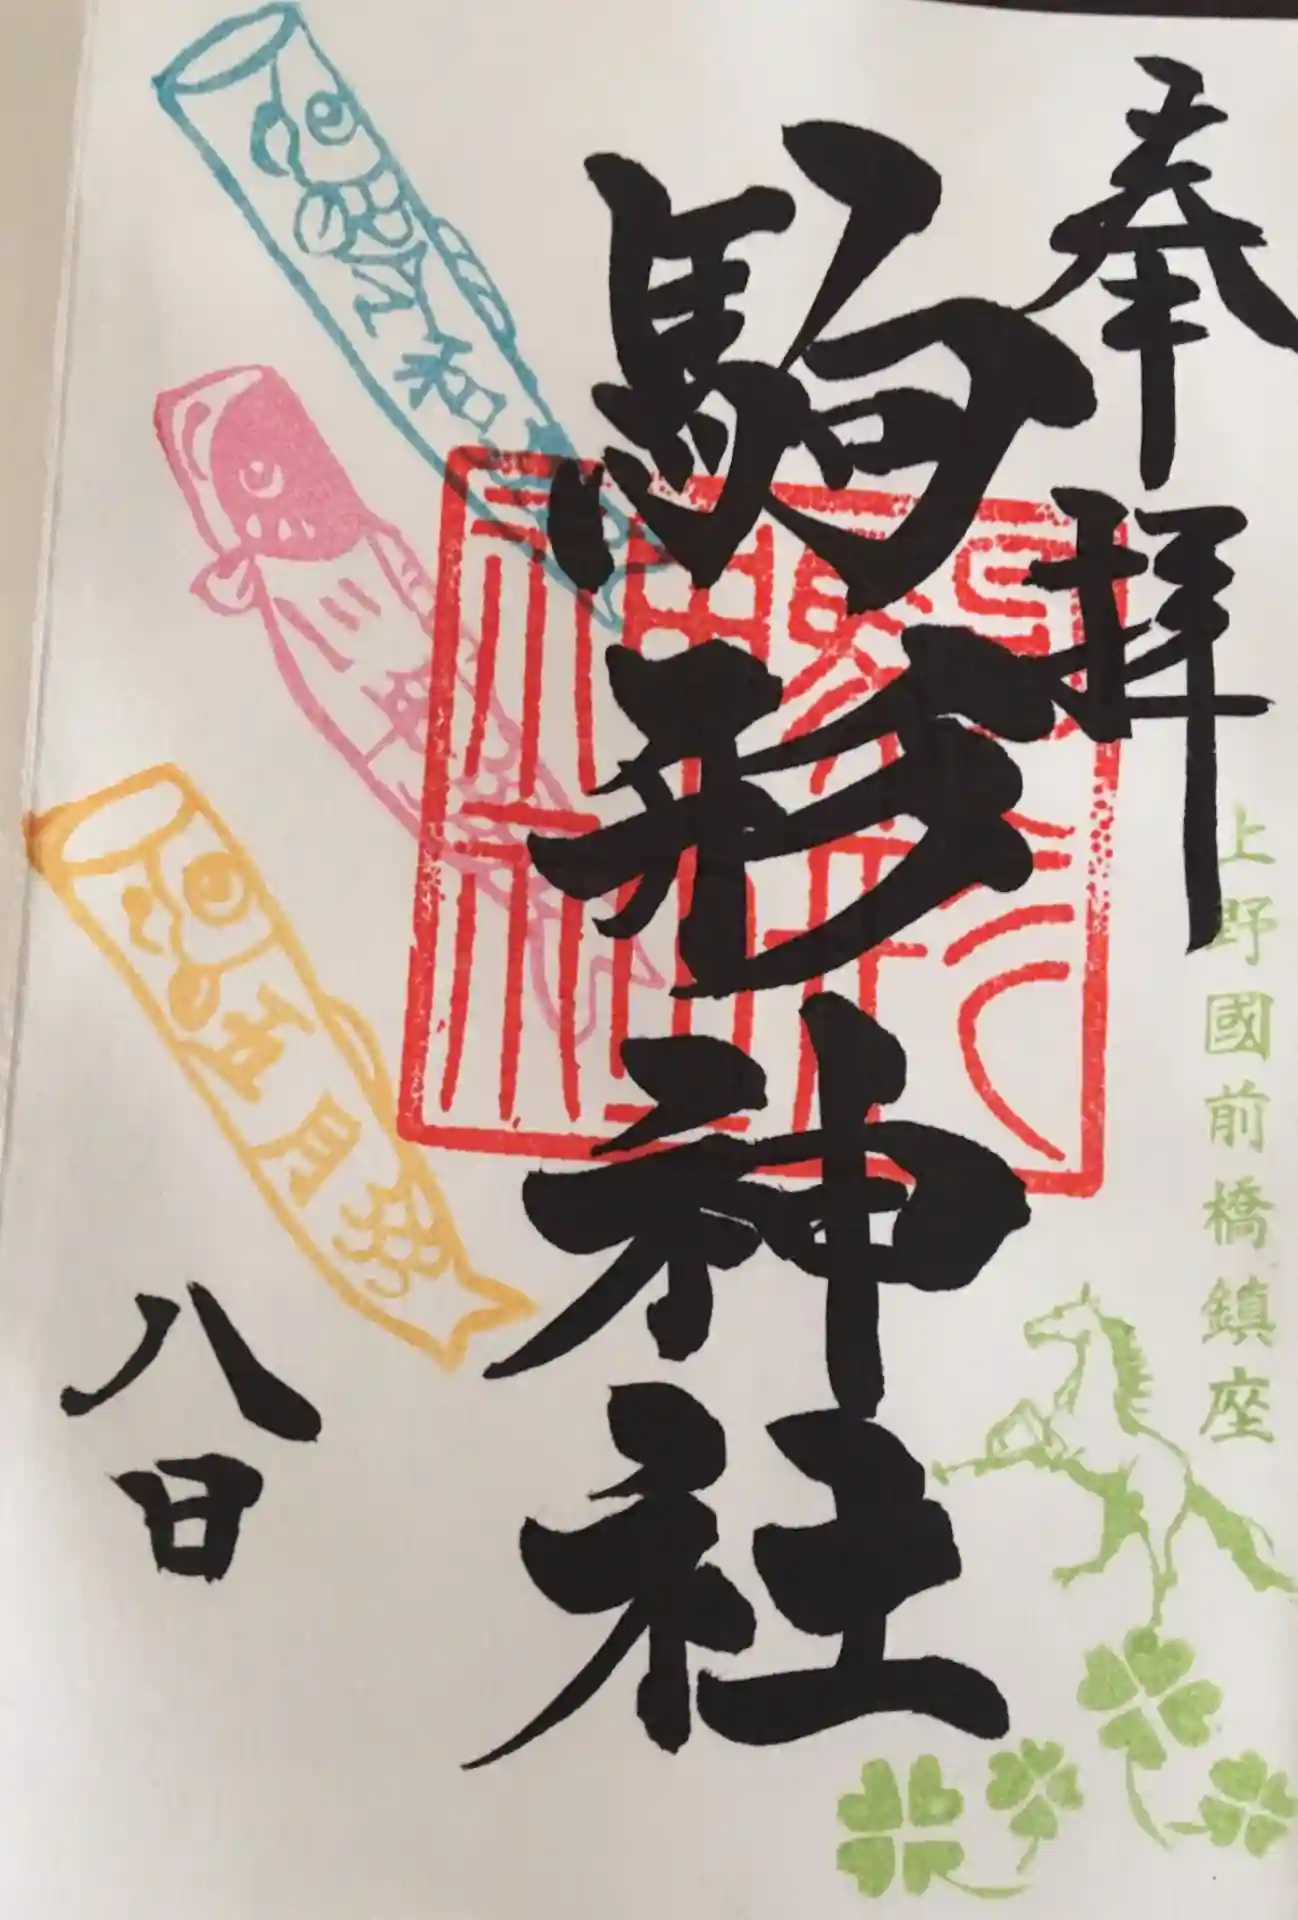 奉拝
上野國前橋鎮座
駒形神社
令和
三年
五月
八日